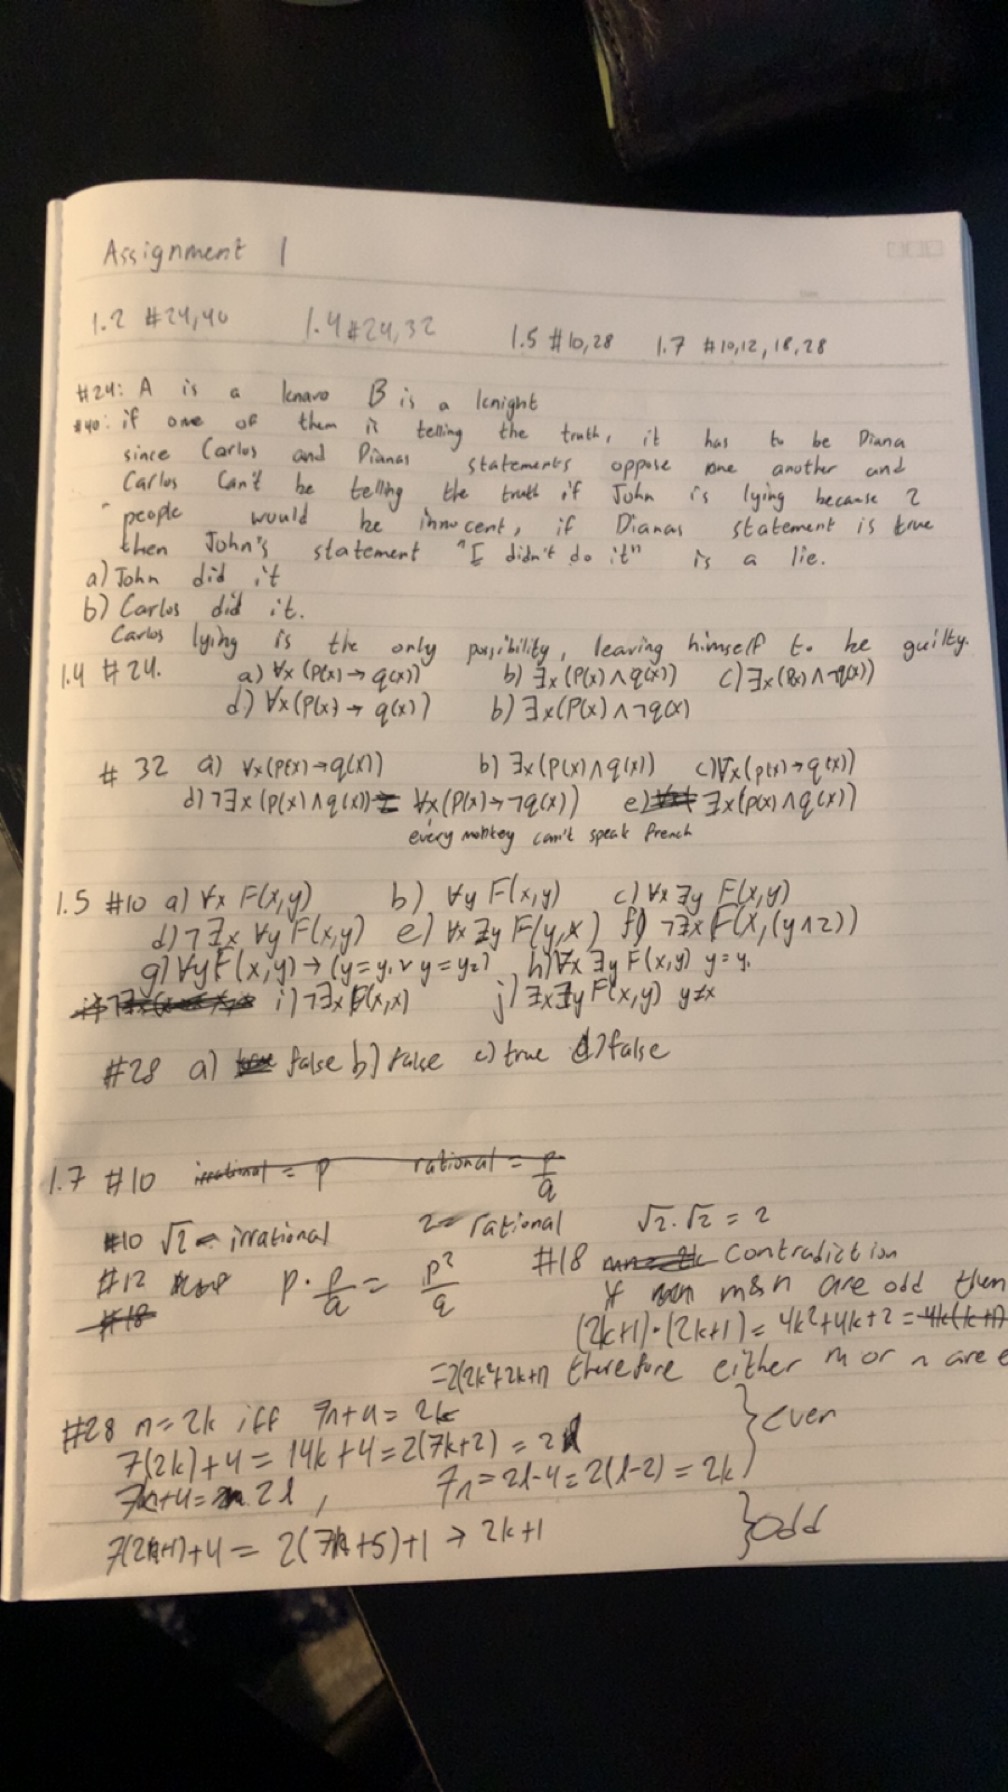 Assignment 1
1.2 #24,40 1.4 #24,32 1.5 #10,28 1.7 #10,12,18,28
#24: A is a knave B is a knight
#40: if one of them is telling the truth, it has to be Diana
since Carlos and Dianas statements oppose one another and
Carlos can't be telling the truth if John is lying because 2
people would be innocent, if Dianas statement is true
then John's statement "I didn't do it" is a lie.
a) John did it
b) Carlos did it.
Carlos lying is the only possibility, leaving himself to be guilty.
1.4 #24. a) ∀x (P(x) → q(x)) b) ∃x (P(x) ∧ q(x)) c) ∃x (P(x) ∧ ¬q(x))
d) ∀x (P(x) → q(x)) b) ∃x (P(x) ∧ ¬q(x)
# 32 a) ∀x (P(x) → q(x)) b) ∃x (P(x) ∧ q(x)) c) ∀x (p(x) → q(x))
d) ¬∃x (P(x) ∧ q(x)) = ∀x (P(x) → ¬q(x)) e) ∃x (p(x) ∧ q(x))
every monkey can't speak french
1.5 #10 a) ∀x F(x,y) b) ∀y F(x,y) c) ∀x ∃y F(x,y)
d) ¬∃x ∀y F(x,y) e) ∀x ∃y F(y,x) f) ¬∃x F(x, (y∧z))
g) ∀y F(x,y) → (y=y₁ ∨ y=y₂) h) ∀x ∃y F(x,y) y=y₁
i) ¬∃x F(x,x) j) ∃x ∃y F(x,y) y≠x
#28 a) false b) false c) true d) false
1.7 #10 irrational = p rational = p/q
#10 √2 = irrational 2 = rational √2 · √2 = 2
#12 p · p/q = p²/q #18 contradiction
#18 if m&n are odd then
(2k+1)·(2k+1) = 4k²+4k+2 = 4k(k+1)
=2(2k²+2k+1) therefore either m or n are
#28 n = 2k iff 7n+4 = 2k
7(2k)+4 = 14k+4 = 2(7k+2) = 2l } even
7n+4 = 2l, 7n = 2l-4 = 2(l-2) = 2k
7(2k+1)+4 = 2(7k+5)+1 → 2k+1 } Odd